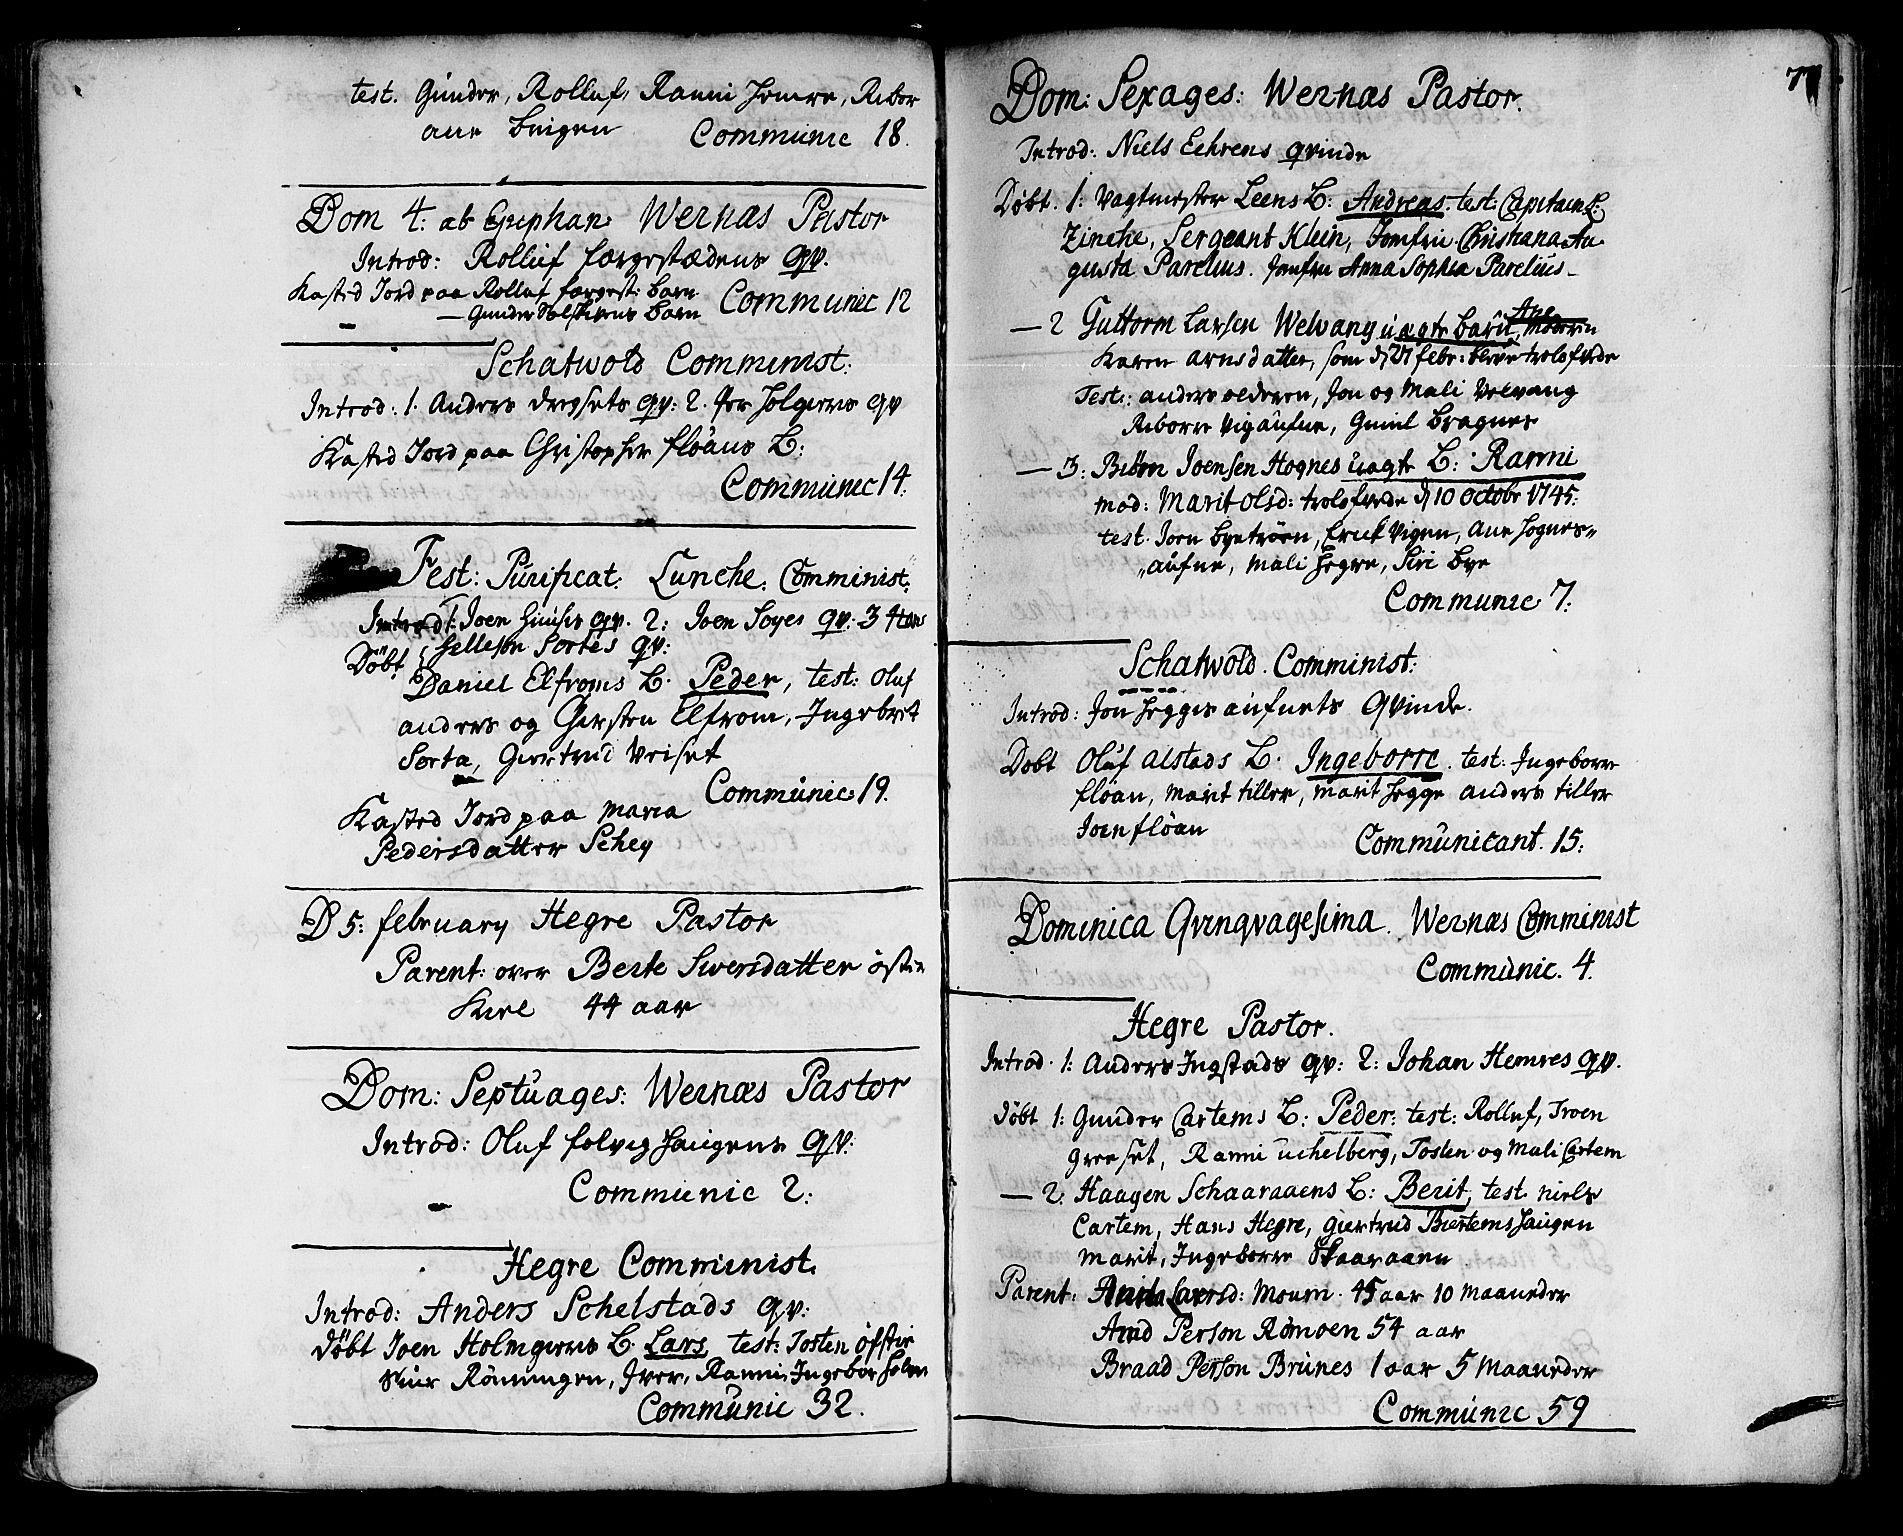 test. Gunder, Rolluf, Ranni Hemre, Rebor
ane Buigen Communic 18.
Dom 4: ab Epiphan: Wernæs Pastor
Introd: Rolluf færgestædens qv.
Kasted Jord paa Rolluf færgest: Barn
— Gunder Barn Communic 12
Schatwold Comminist:
Introd: 1. Anders qv: 2. Per Holgiers qv
Kasted Jord paa Christopher flöans B:
Communic 14:
Fest: Purificat: Lunche. Comminist:
Introd: 1. Joen qv. 2: Joen Soyes qv: 3 Hans
Hellesøn Sortes qv:
Döbt Daniel Elfroms B. Peder, test: Oluf
anders og Giersten Elfrom, Ingebret
Sorta, Giertrud Vriset
Communic 19.
Kasted Jord paa Maria
Pedersdatter Schey
D 5: february Hegre Pastor
Parent: over Berte Siversdatter östen
Kirl 44 aar
Dom: Septuages: Wernæs Pastor
Introd: Oluf folvig Haugens qv:
Communic 2:
Hegre Comminist.
Introd: Anders Schelstads qv:
Döbt Joen Holmgierns B. Lars test: Tosten öfstie
Siur Rönningen, Iver, Ranni, Ingebor
Communic 32.
7
Dom: Sexages: Wernæs Pastor.
Introd: Niels Eehrens qvinde
Döbt. 1: Vagtmester Leens B: Andreas. test: Capitain
Zinche, Sergeant Klein, Jomfru Christiana Au
gusta Parelius. Jomfru Anna Sophia Parelius —
— 2 Guttorm Larsen Welvang uægte barn Moderen
Karen arnsdatter, som d 27 febr: bleve trolofvede
Test: anders olderen, Jon og Mali Velvang
Reborre Vigaufne, Gunil Bragnes
— 3: Biörn Joensen Hognes uægte B: Ranni
mod: Marit olsd: trolofvede d 10 octobr 1745:
test. Joen Byetröen, Erick Vigen, Ane Hognes„
„aufne, Mali Hegre, Siri Bye
Communic 7:
Schatwold. Comminist:
Introd: Jon Hegges aufnets qvinde.
Döbt Oluf alstads B. Ingeborre. test: Ingeborre
flöan, Marit tiller, Marit Hegge anders tiller
Joen flöan Communicant. 15:
Dominica Qvinqvagesima. Wernæs Comminist
Communic. 4.
Hegre Pastor.
Introd. 1: Anders Ingstads qv: 2: Johan Hemres qv.
Döbt 1: Gunder Cartems B: Peder: test: Rolluf, Troen
Greeset, Ranni uchelberg, Tosten og Mali Cartem
— 2: Haagen Schaaraaens B: Berit, test. niels
Cartem, Hans Hegre, Giertrud Biertems Haugen
Marit, Ingeborre Skaaraaen
Parent: Larsd: Moum. 45 aar 10 Maaneder
Arnd Person Römoen 54 aar
Braad Person Brunes 1 aar 5 Maaneder
Communic 59